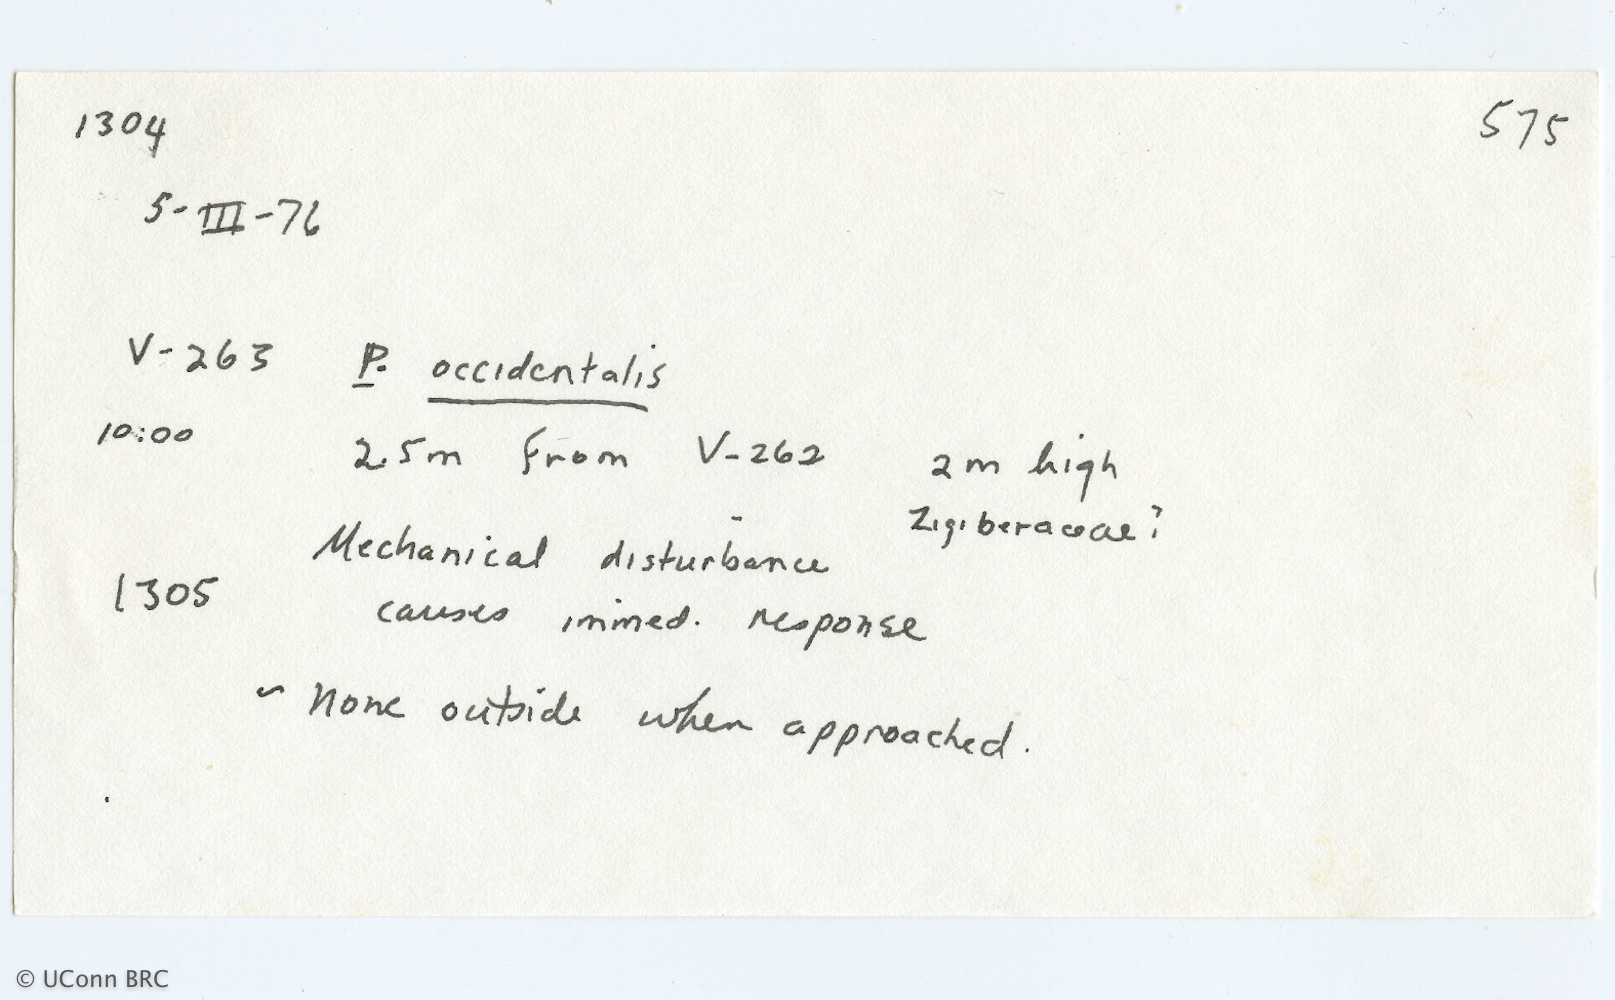 1304 575
5-III-76
V-263 P. occidentalis
10:00 2.5m from V-262 2m high
Zigiberaceae?
Mechanical disturbance
1305 causes immed. response
~ None outside when approached.
© UConn BRC